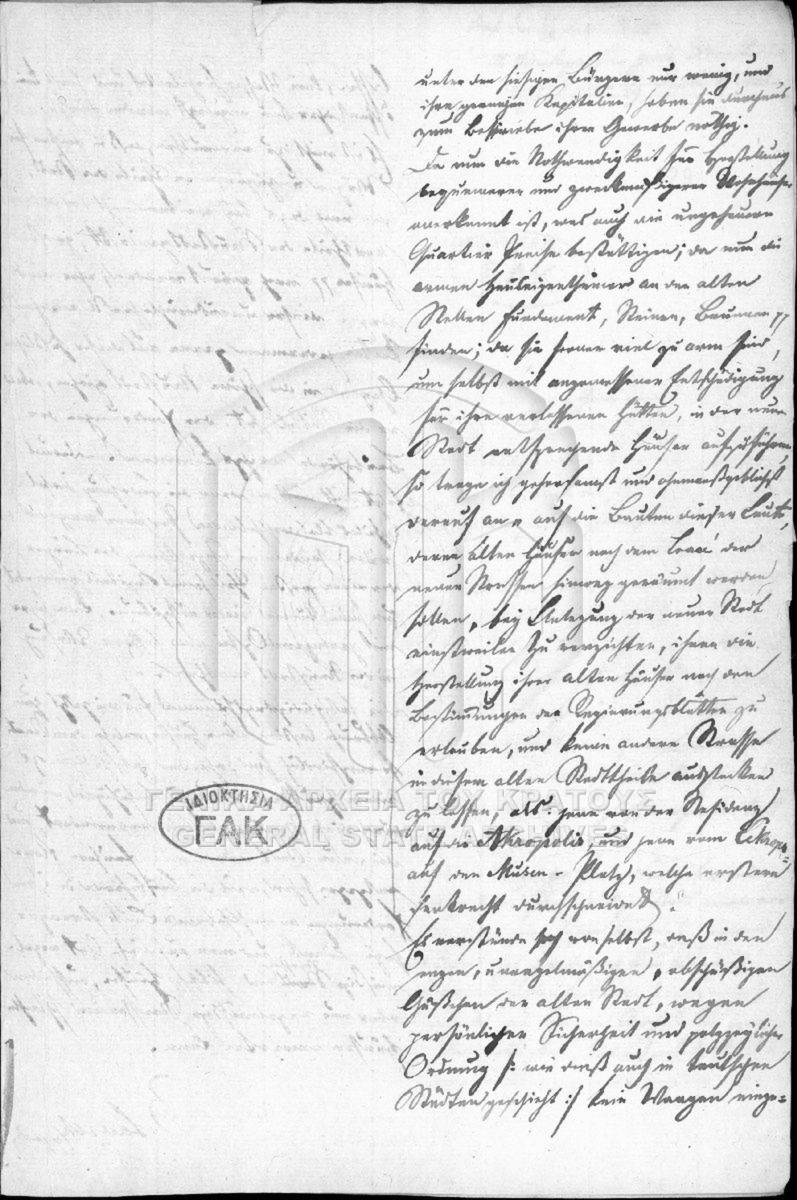 unter den hiesigen Bürgern nur wenig, und
ihre geringen Kapitalien, haben sie durchaus
zum Betriebe ihrer Gewerbe nöthig.
Da nun die Nothwendigkeit zur Herstellung
bequemerer und zweckmäßigerer Wohnhäuser
anerkannt ist, was auch die ungeheuren
Quartier Preise bestättigen; da nun die
armen Hauseigenthümer an den alten
Stellen Fundament, Steine, Brunnen pp
finden; da sie ferner viel zu arm sind,
um selbst mit angemessener Entschädigung
für ihre verlassenen Hütten, in der neuen
Stadt entsprechende Häuser aufzuführen,
so trage ich gehorsamst und ohnmaßgeblichst
darauf an, auf die Bauten dieser Leute,
deren alten Häuser nach dem der
neuen Strassen hinweg geräumt werden
sollen, bey Anlegung der neuen Stadt
einstweilen zu verzichten, ihnen die
Herstellung ihrer alten Häuser nach den
Bestimmungen der Regierungsblätter zu
erlauben, und keine andere Strasse
in diesem alten Stadttheile ausstecken
zu lassen, als: jene von der Residenz
auf die Akropolis, und jene vom
auf den Musen-Platz, welche erstere
senkrecht durchschneidet.
Es verstünde sich von selbst, daß in den
engen, unregelmäßigen, abschüßigen
Gäßchen der alten Stadt, wegen
persönlicher Sicherheit und polizeylicher
Ordnung /: wie dieß auch in teutschen
Städten geschieht :/ kein Waagen einge=
ΙΔΙΟΚΤΗΣΙΑ
ΓΑΚ
ΓΕΝΙΚΑ ΑΡΧΕΙΑ ΤΟΥ ΚΡΑΤΟΥΣ
GENERAL STATE ARCHIVES